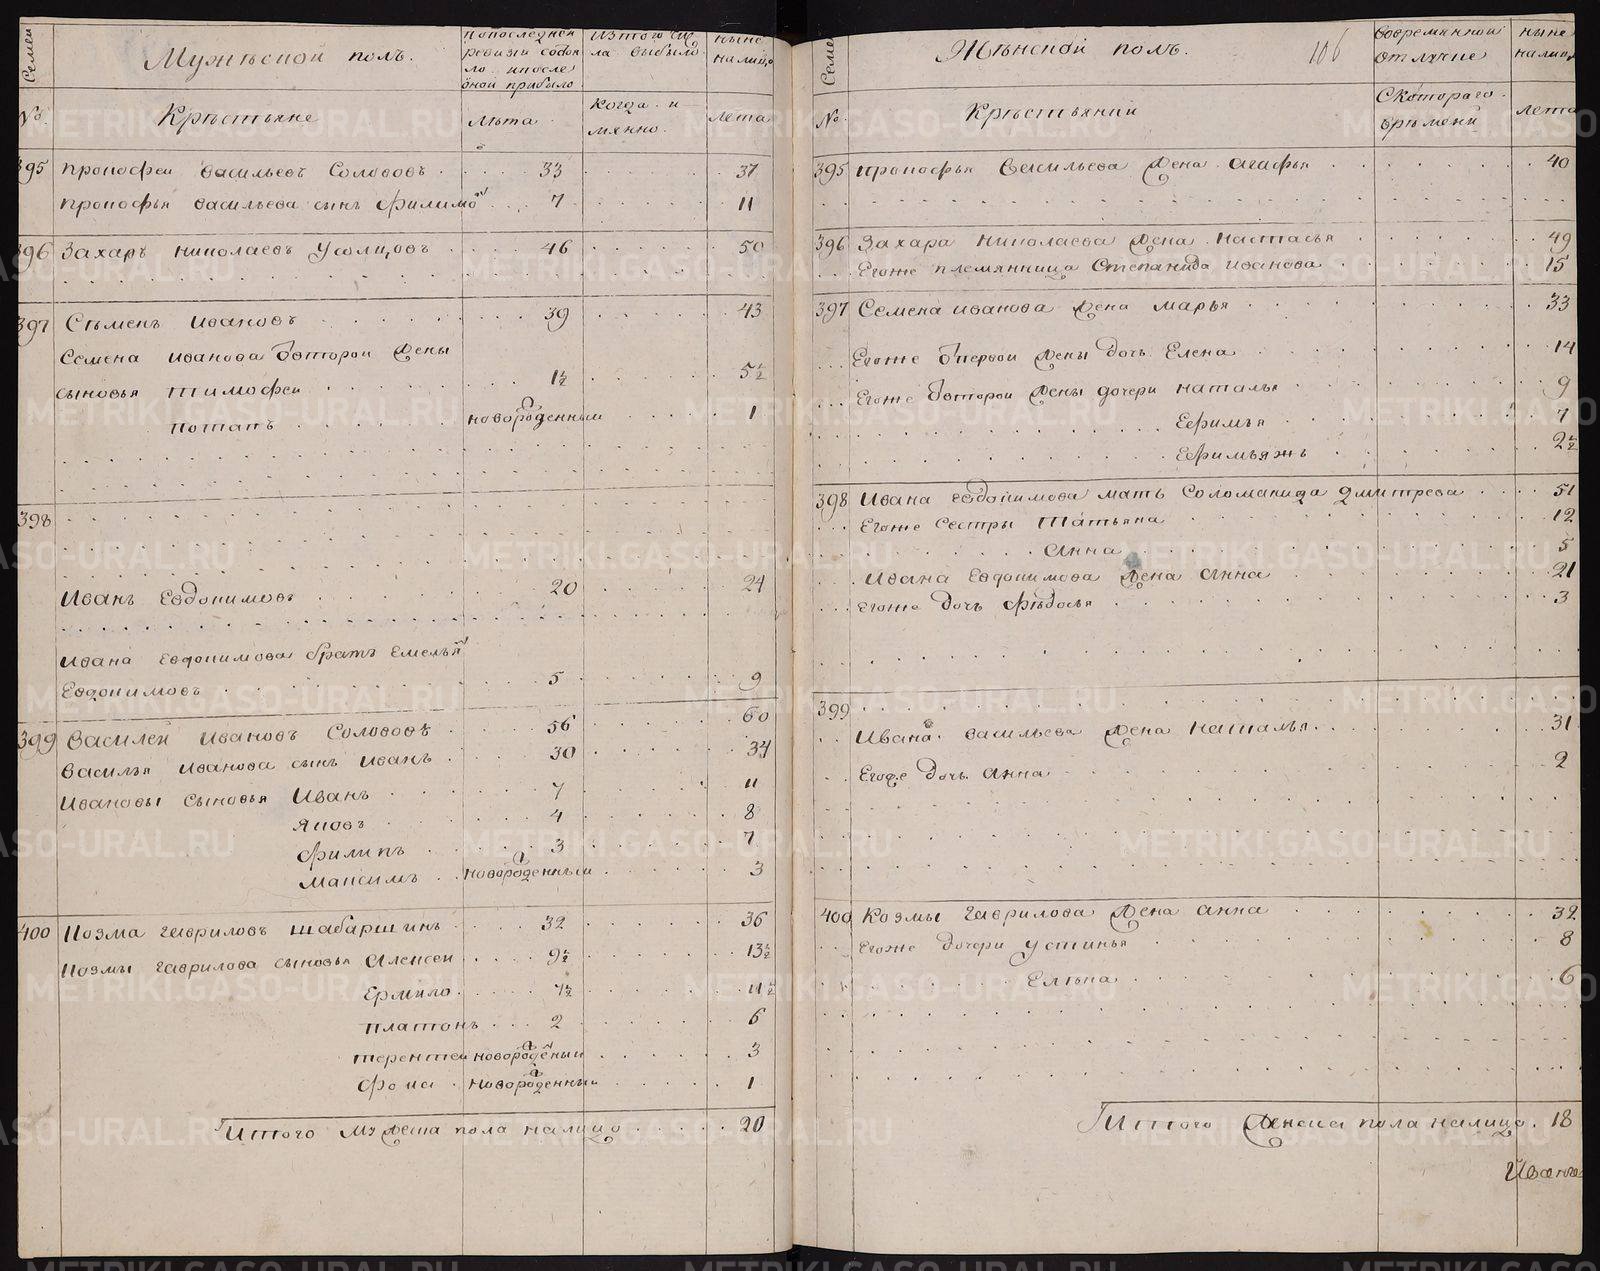 Семеи
Мужеской полъ.
попоследней ревизи состоя ло ипосле оной прибыло
Изтого чи сла выбыло
ныне налицо
№
Крестьяне
лета
когда и мянно
лета
395 прокофеи васильевъ Солововъ 33 37
прокофья васильева сынъ филимо 7 11
396 Захаръ николаевъ Усолцовъ 46 50
397 Сѣменъ ивановъ 39 43
Семена иванова Ѿвторои жены
сыновья тимофеи 1½ 5½
потапъ новорожденныи 1
398
Иванъ Евдокимовъ 20 24
Ивана Евдокимова братъ Емелья
Евдокимовъ 5 9
399 Василеи ивановъ Солововъ 56 60
василья иванова сынъ иванъ 30 34
Ивановы сыновья Иванъ 7 11
яковъ 4 8
филипъ 3 7
максимъ новорожденныи 3
400 Козма гавриловъ шабаршинъ 32 36
Козмы гаврилова сыновья алексеи 9½ 13½
Ермило 7½ 11½
платонъ 2 6
терентеи новорожденыи 3
фома новорожденныи 1
Итого мужеска пола налицо 20
Семеи
Женской полъ.
106
вовременной отлучке
ныне налицо
№
Крестьянии
Скотораго времени
лета
395 прокофья васильева жена агафья 40
396 Захара николаева жена настасья 49
Егоже племянница Степанида иванова 15
397 Семена иванова жена марья 33
Егоже Ѿпервои жены дочь Елена 14
Егоже Ѿвторои жены дочери наталья 9
Ефимья 7
Ефимьяжъ 2½
398 Ивана евдокимова мать соломанида дмитрева 51
Егоже Сестры татьяна 12
анна 5
Ивана Евдокимова жена анна 21
Егоже дочь фѣдосья 3
399
Ивана васильева жена наталья 31
Егоже дочь анна 2
400 Козмы гаврилова жена анна 32
Егоже дочери устинья 8
Елѣна 6
Итого женска пола налицо 18
METRIKI.GASO-URAL.RU